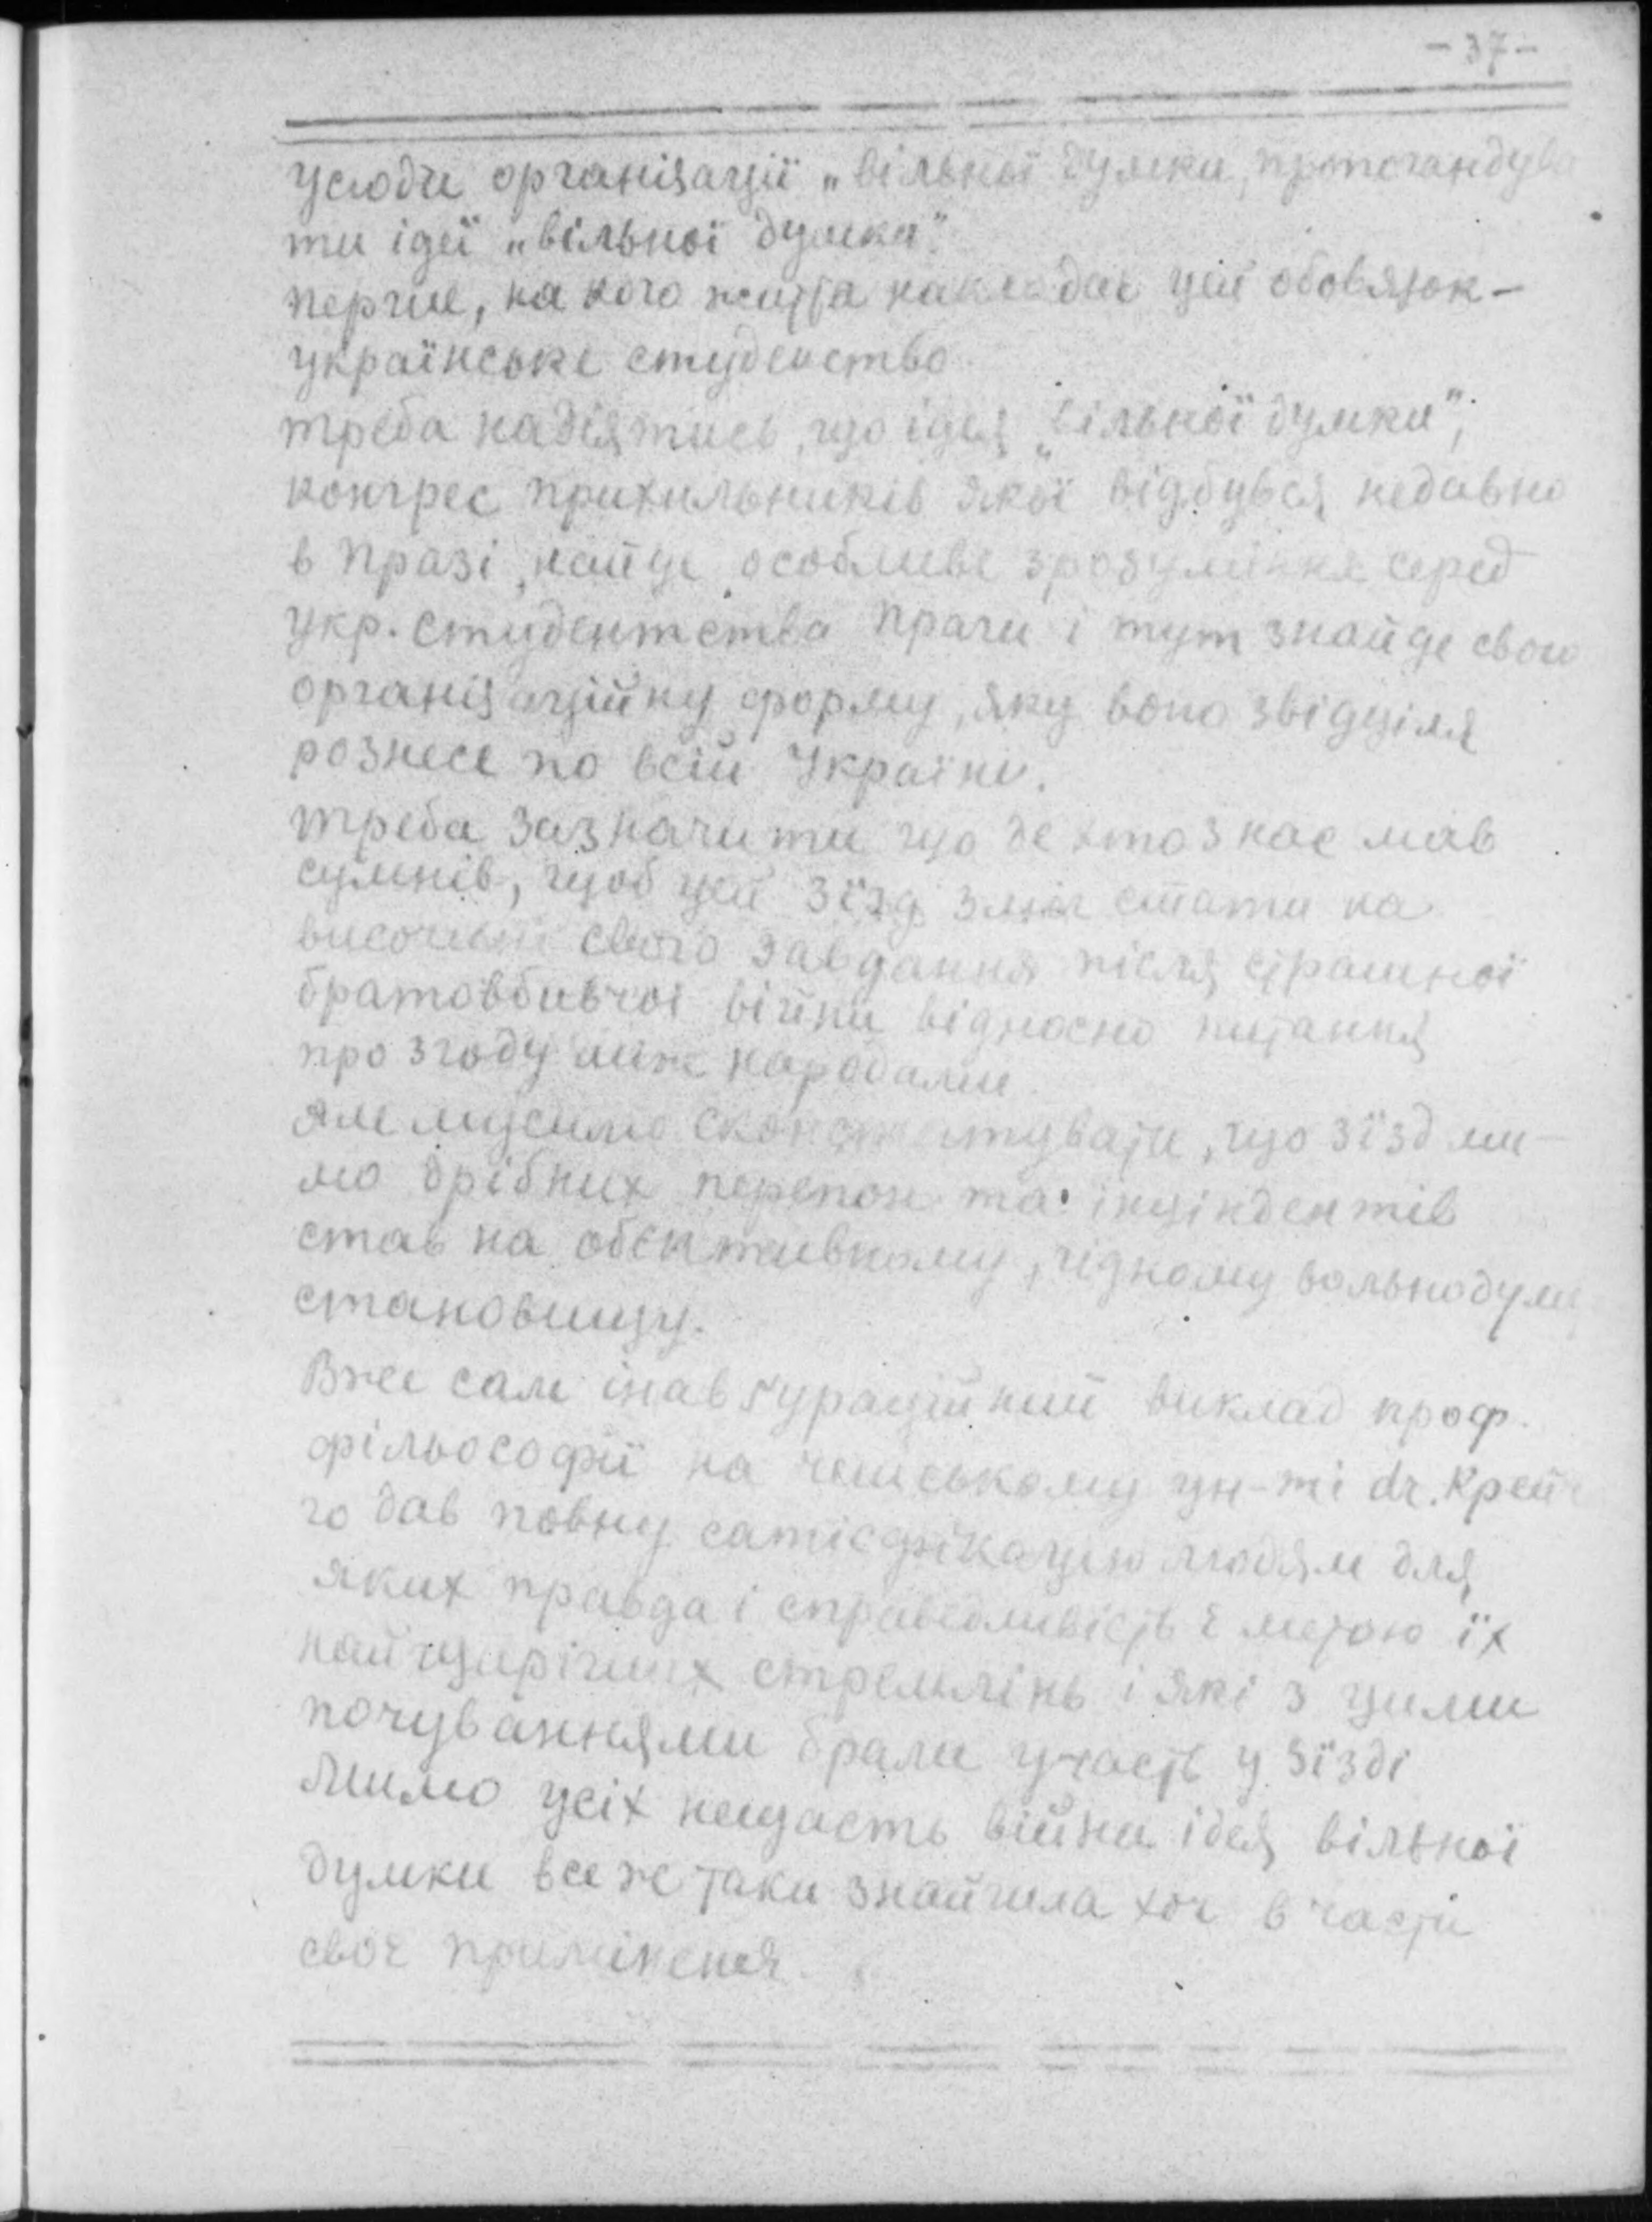 -37-
усюди організації „вільної думки, пропогандува
ти ідеї „вільної думки".
перше, на кого життя накладає цей обовязок-
українське студенство
треба надіятись, що ідея „вільної думки";
конгрес прихильників якої відбувся недавно
в Празі, найде особливе зрозуміння серед
укр. студентства Праги і тут знайде свою
організаційну форму, яку воно звідціля
рознесе по всій Україні.
треба зазначити що де хто з нас мав
сумнів, щоб цей зїзд зміг стати на
височині свого завдання після страшної
братовбивчої війни відносно питання
про згоду між народами.
Але мусимо сконстатувати, що зїзд ми-
мо дрібних перепон та інціндентів
став на обєктивному, гідному вольнодум
становищу.
Вже сам інавґураційний виклад проф.
фільософії на чешському ун-ті dr. Крейч
го дав повну сатісфікацію людям для
яких правда і справедливість є метою їх
найщиріших стремлінь і які з цими
почуваннями брали участь у зїзді
Мимо усіх нещасть війни ідея вільної
думки все же таки знайшла хоч в части
своє приміненя.